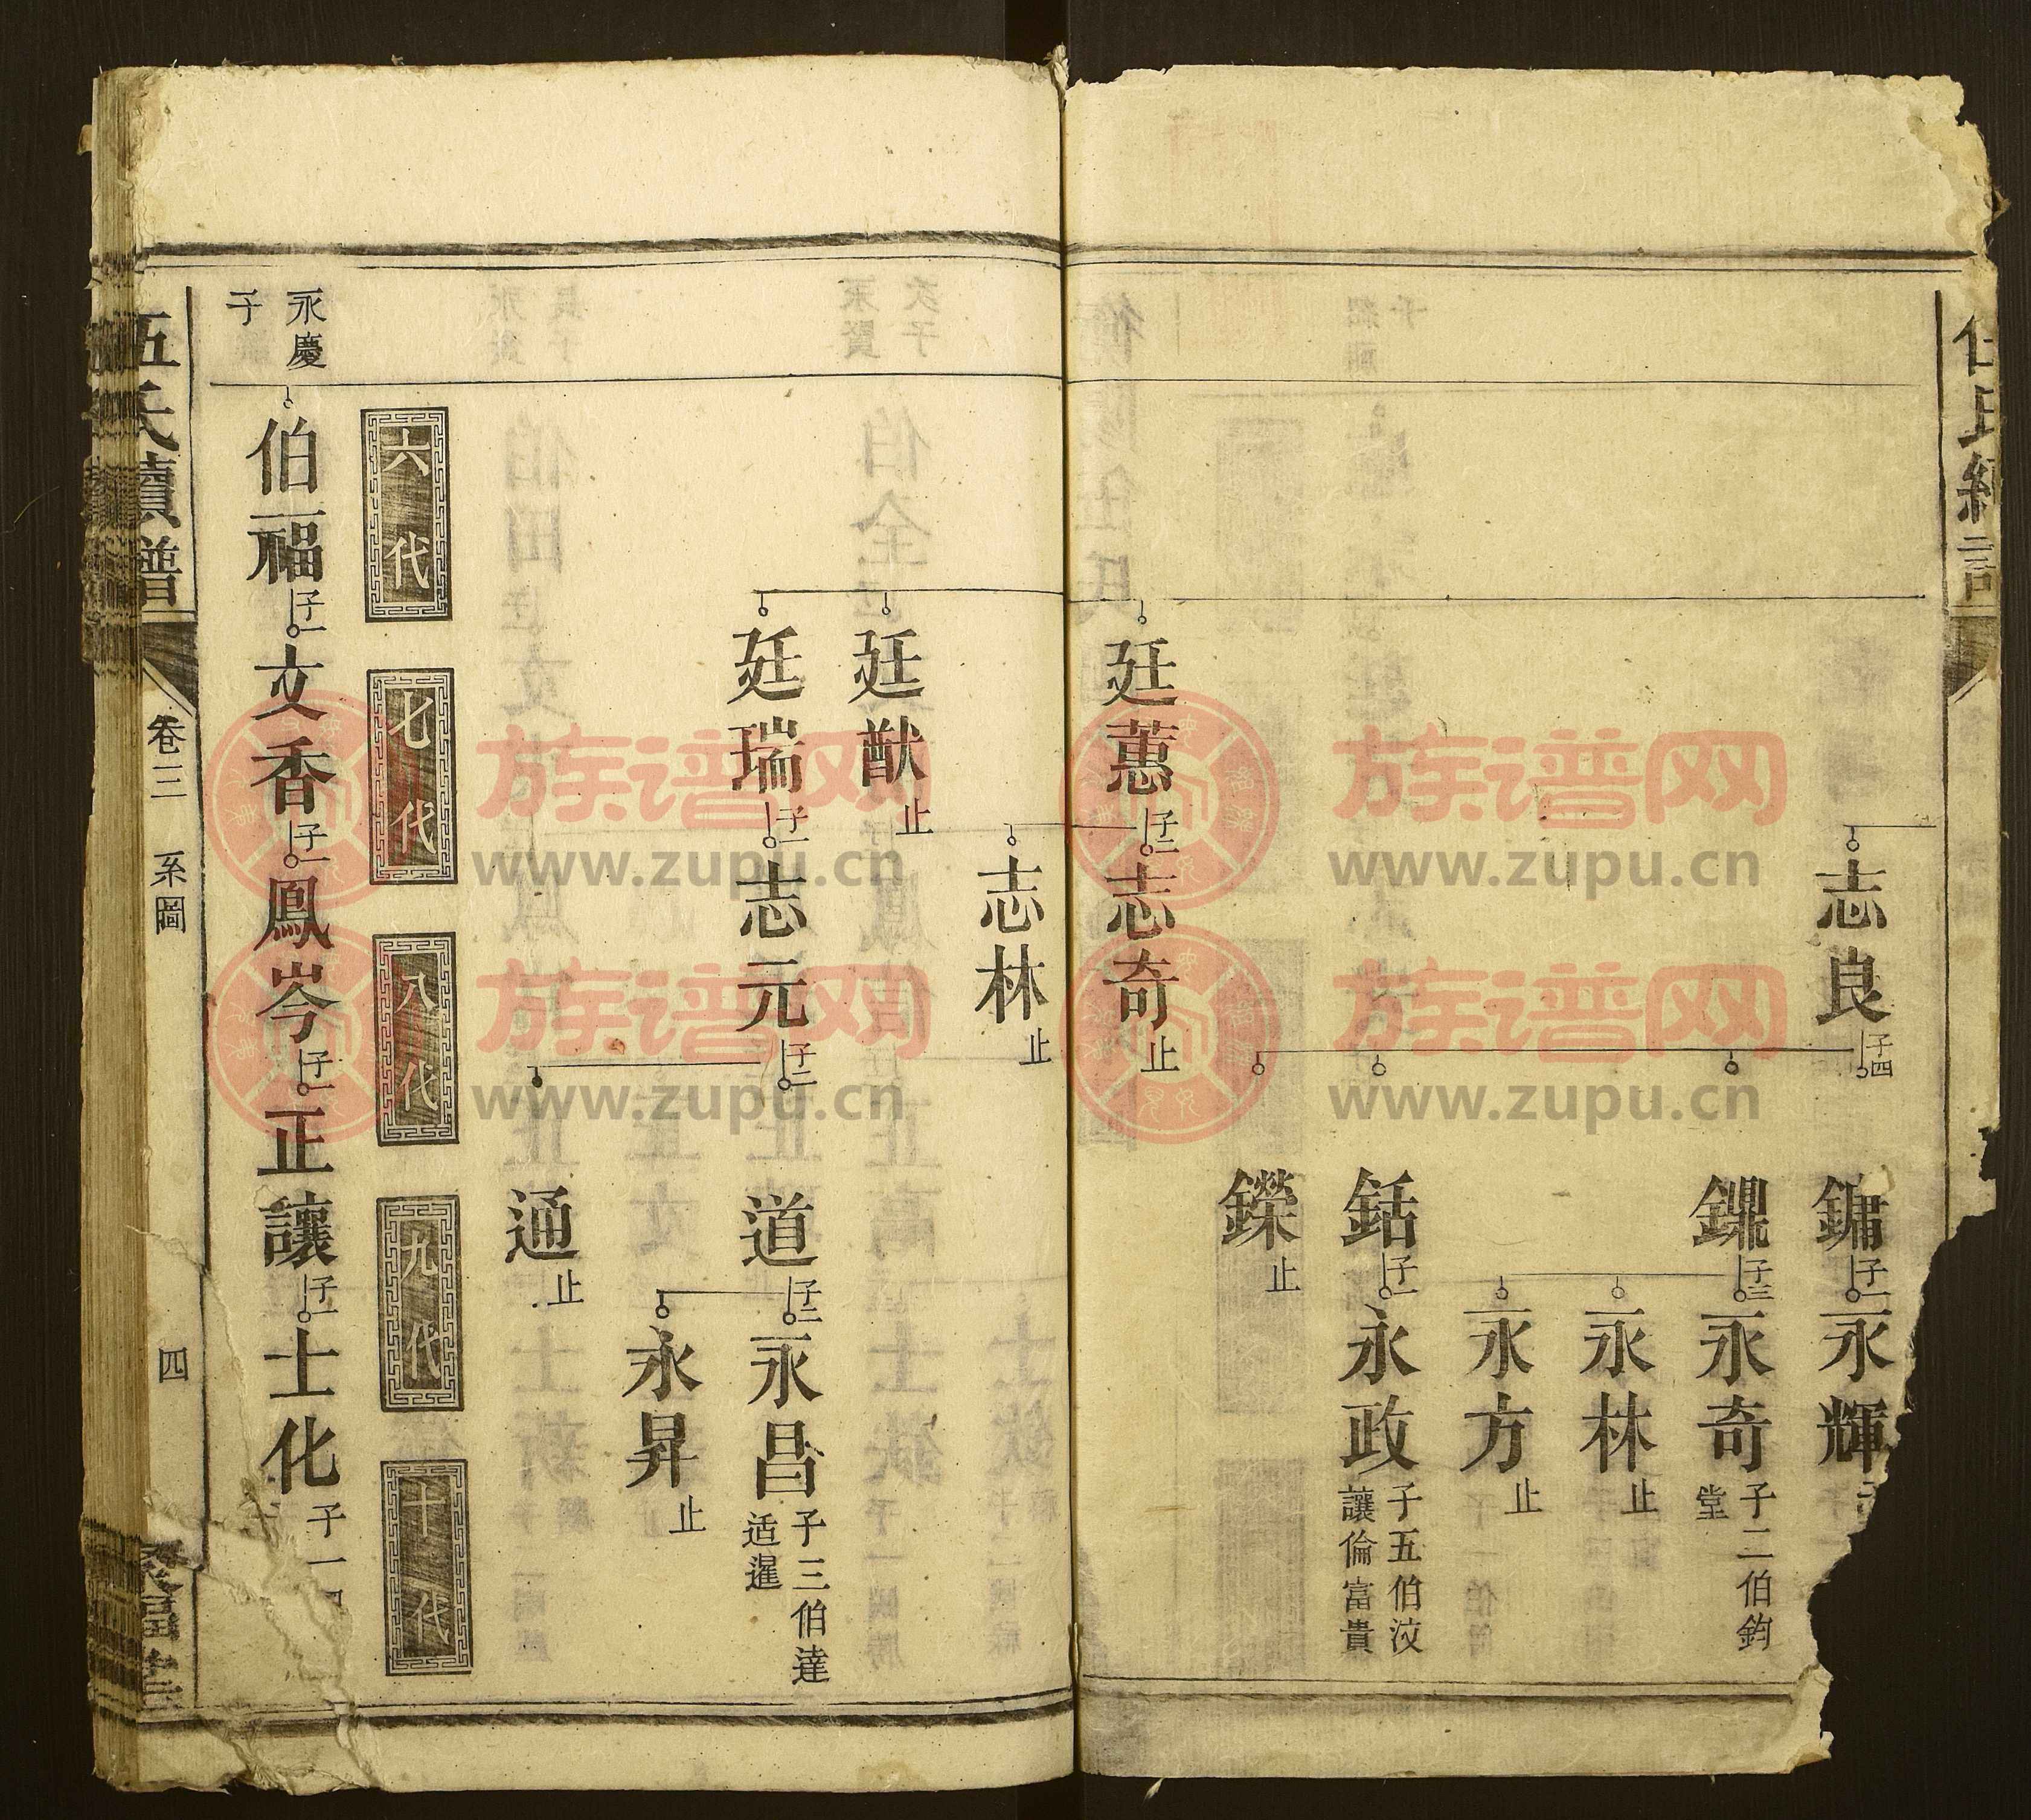 志良 子四
鏞 子一 永輝
子三 永奇 子二伯鈞
堂
永林 止
永方 止
銛 子一 永政 子五伯汶
讓倫富貴
鑅 止
廷蕙 子二 志奇 止
志林 止
廷猷 止
廷瑞 子一 志元 子二 道 子二 永昌 子三伯達
适暹
永昇 止
通 止
六代
七代
八代
九代
十代
永慶
子
伯福 子一 文香 子一 鳳岑 子一 正讓 子一 士化 子一
伍氏續譜 卷三 系圖 四
族谱网
www.zupu.cn
族谱网
www.zupu.cn
族谱网
www.zupu.cn
族谱网
www.zupu.cn